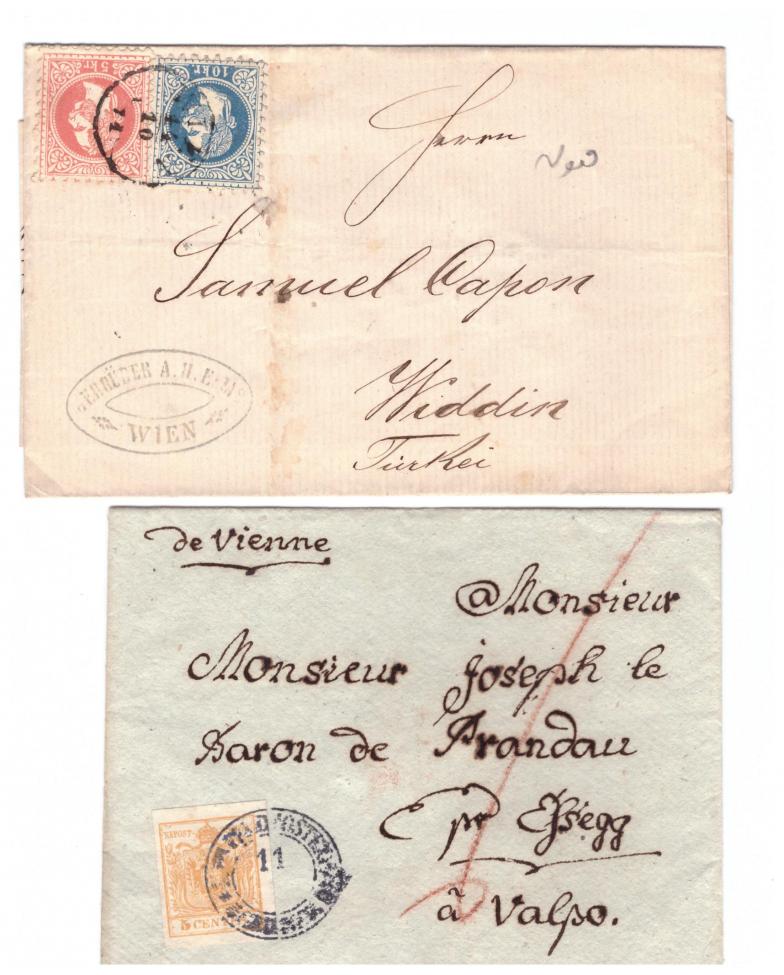 5 kr
10 kr
10
11
Herrn
Samuel Capon
Widdin
Türkei
GEBRÜDER A. H.
WIEN
de Vienne
@ Monsieur
Monsieur Joseph le
Baron de Prandau
pr Essegg
à Valpo.
KKPOST-
5 CENT
FELDPOSTEXP
11